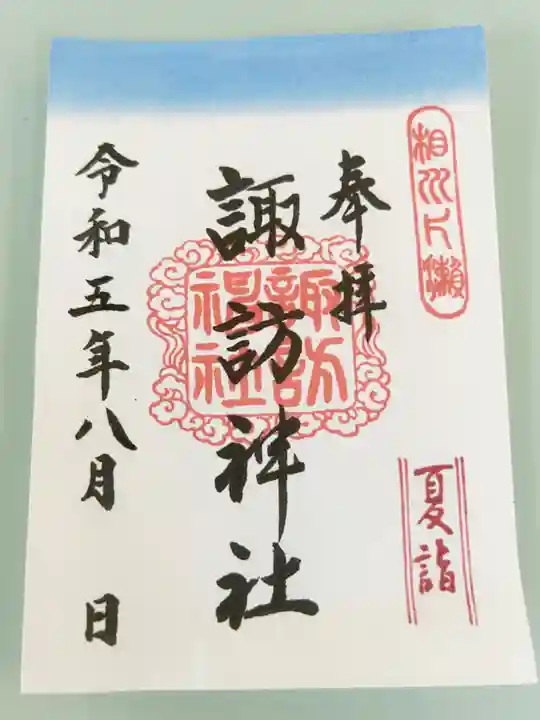 相州片瀬
夏詣
奉拝
諏訪神社
諏訪神社
令和五年八月 日